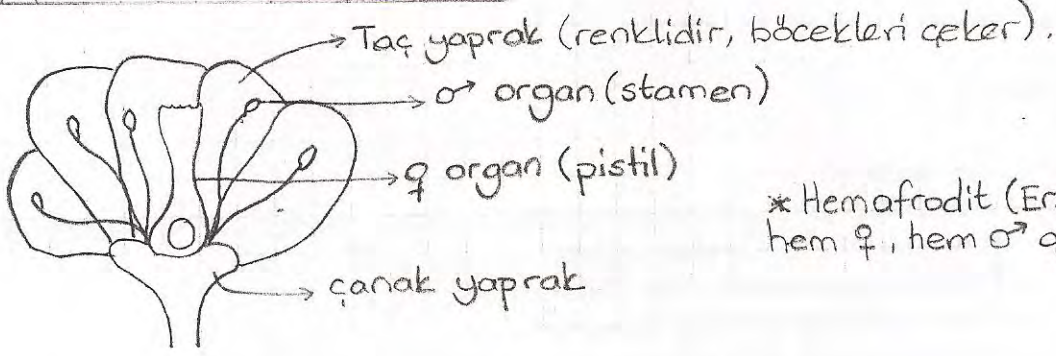 Taç yaprak (renklidir, böcekleri çeker).
♂ organ (stamen)
♀ organ (pistil)
* Hemafrodit (Er
hem ♀, hem ♂
çanak yaprak